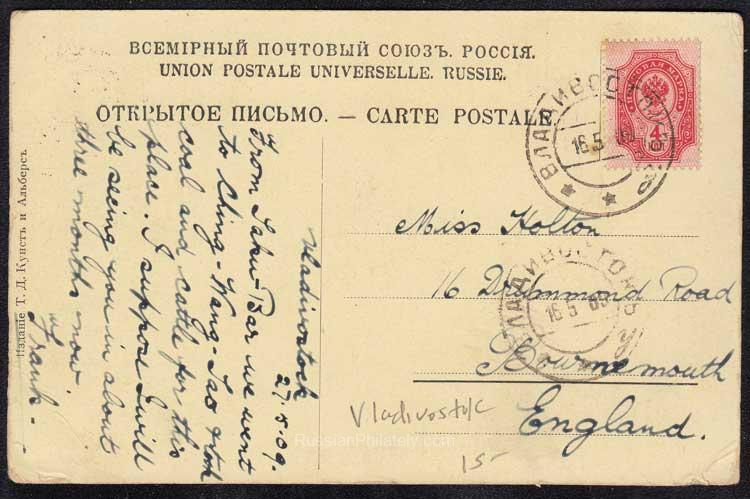 ВСЕМІРНЫЙ ПОЧТОВЫЙ СОЮЗЪ. РОССІЯ.
UNION POSTALE UNIVERSELLE. RUSSIE.
ОТКРЫТОЕ ПИСЬМО. — CARTE POSTALE.
ПОЧТОВАЯ МАРКА
4
ВЛАДИВОСТОКЪ
16 5
Vladivostock
27.5.09.
From Taku-Bar we went
to Ching-Wang-Tao took
coal and cattle for this
place. I suppose I will
be seeing you in about
three months now
Frank-
Miss Holton
16 Drummond Road
Bournemouth
England.
ВЛАДИВОСТОКЪ
16 5 09
Vladivostok
15-
RussianPhilately.com
Изданіе Т. Д. Кунстъ и Альберсъ.